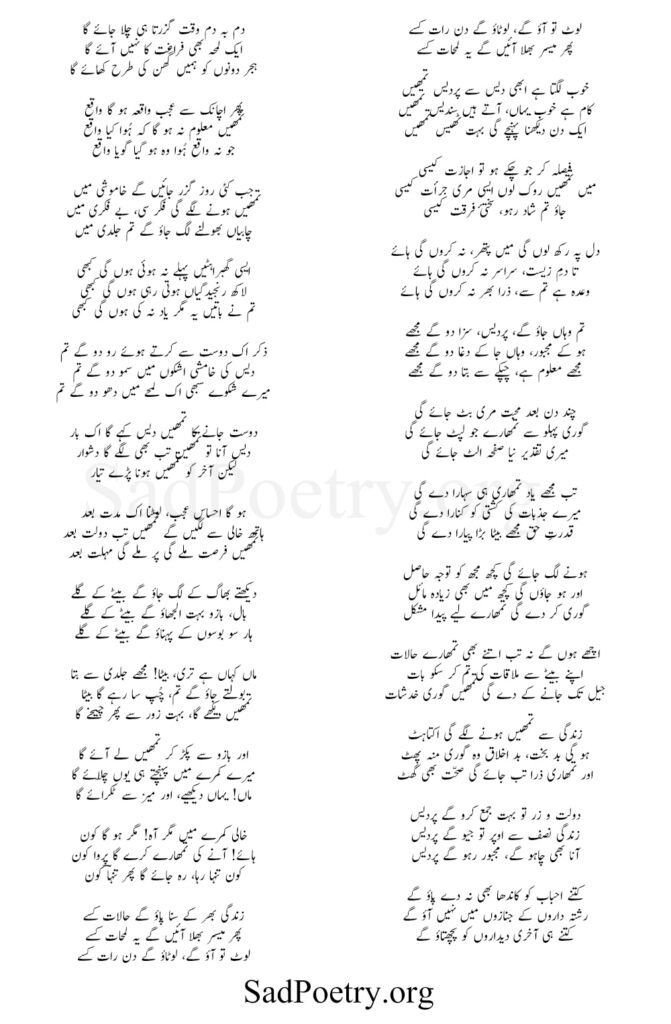 لوٹ تو آؤ گے، لوٹاؤ گے دن رات کسے
پھر میسر بھلا آئیں گے یہ لمحات کسے
خوب لگتا ہے ابھی دیس سے پردیس تمھیں
کام ہے خوب یہاں، آتے ہیں سندیس تمھیں
ایک دن دیکھنا پہنچے گی بہت ٹھیس تمھیں
فیصلہ کر جو چکے ہو تو اجازت کیسی
میں تمھیں روک لوں ایسی مری جرأت کیسی
جاؤ تم شاد رہو، سختیٔ فرقت کیسی
دل پہ رکھ لوں گی میں پتھر، نہ کروں گی ہائے
تا دمِ زیست، سراسر نہ کروں گی ہائے
وعدہ ہے تم سے، ذرا بھر نہ کروں گی ہائے
تم وہاں جاؤ گے، پردیس، سزا دو گے مجھے
ہو کے مجبور، وہاں جا کے دغا دو گے مجھے
مجھے معلوم ہے، چپکے سے بتا دو گے مجھے
چند دن بعد محبت مری بٹ جائے گی
گوری پہلو سے تمھارے جو لپٹ جائے گی
میری تقدیر نیا صفحہ الٹ جائے گی
تب مجھے یاد تمھاری ہی سہارا دے گی
میرے جذبات کی کشتی کو کنارا دے گی
قدرتِ حق مجھے بیٹا بڑا پیارا دے گی
ہونے لگ جائے گی کچھ مجھ کو توجہ حاصل
اور ہو جاؤں گی کچھ میں بھی زیادہ مائل
گوری کر دے گی تمھارے لیے پیدا مشکل
اچھے ہوں گے نہ تب اتنے بھی تمھارے حالات
اپنے بیٹے سے ملاقات کی تم کر سکو بات
جیل تک جانے کے دے گی تمھیں گوری خدشات
زندگی سے تمھیں ہونے لگے گی اکتاہٹ
ہو گی بد بخت، بد اخلاق وہ گوری منہ پھٹ
اور تمھاری ذرا تب جائے گی صحّت بھی گھٹ
دولت و زر تو بہت جمع کرو گے پردیس
زندگی نصف سے اوپر تو جیو گے پردیس
آنا بھی چاہو گے، مجبور رہو گے پردیس
کتنے احباب کو کاندھا بھی نہ دے پاؤ گے
رشتہ داروں کے جنازوں میں نہیں آؤ گے
کتنے ہی آخری دیداروں کو پچھتاؤ گے
دم بہ دم وقت گزرتا ہی چلا جائے گا
ایک لمحہ بھی فراغت کا نہیں آئے گا
ہجر دونوں کو ہمیں گھن کی طرح کھائے گا
پھر اچانک سے عجب واقعہ ہو گا واقع
تمھیں معلوم نہ ہو گا کہ ہُوا کیا واقع
جو نہ واقع ہُوا وہ ہو گیا گویا واقع
جب کئی روز گزر جائیں گے خاموشی میں
تمھیں ہونے لگے گی فکر سی، بے فکری میں
چابیاں بھولنے لگ جاؤ گے تم جلدی میں
ایسی گھبراہٹیں پہلے نہ ہوئی ہوں گی کبھی
لاکھ رنجیدگیاں ہوتی رہی ہوں گی کبھی
تم نے باتیں یہ مگر یاد نہ کی ہوں گی کبھی
ذکر اک دوست سے کرتے ہوئے رو دو گے تم
دیس کی خامشی اشکوں میں سمو دو گے تم
میرے شکوے سبھی اک لمحے میں دھو دو گے تم
دوست جانے کا تمھیں دیس کہے گا اک بار
دیس آنا تو تمھیں تب بھی لگے گا دشوار
لیکن آخر کو تمھیں ہونا پڑے تیار
ہو گا احساس عجب، لوٹنا اک مدت بعد
ہاتھ خالی سے لگیں گے تمھیں تب دولت بعد
تمھیں فرصت ملے گی پر ملے گی مہلت بعد
دیکھتے بھاگ کے لگ جاؤ گے بیٹے کے گلے
بال، بازو بہت الجھاؤ گے بیٹے کے گلے
ہار سو بوسوں کے پہناؤ گے بیٹے کے گلے
ماں کہاں ہے تری، بیٹا! مجھے جلدی سے بتا
بولتے جاؤ گے تم، چُپ سا رہے گا بیٹا
تمھیں دیکھے گا، بہت زور سے پھر چیخے گا
اور بازو سے پکڑ کر تمھیں لے آئے گا
میرے کمرے میں پہنچتے ہی یوں چلائے گا
ماں! یہاں دیکھیے، اور میز سے ٹکرائے گا
خالی کمرے میں مگر آہ! مگر ہو گا کون
ہائے! آنے کی تمھارے کرے گا پروا کون
کون تنہا رہا، رہ جائے گا پھر تنہا کون
زندگی بھر کے سنا پاؤ گے حالات کسے
پھر میسر بھلا آئیں گے یہ لمحات کسے
لوٹ تو آؤ گے، لوٹاؤ گے دن رات کسے
SadPoetry.org
SadPoetry.org